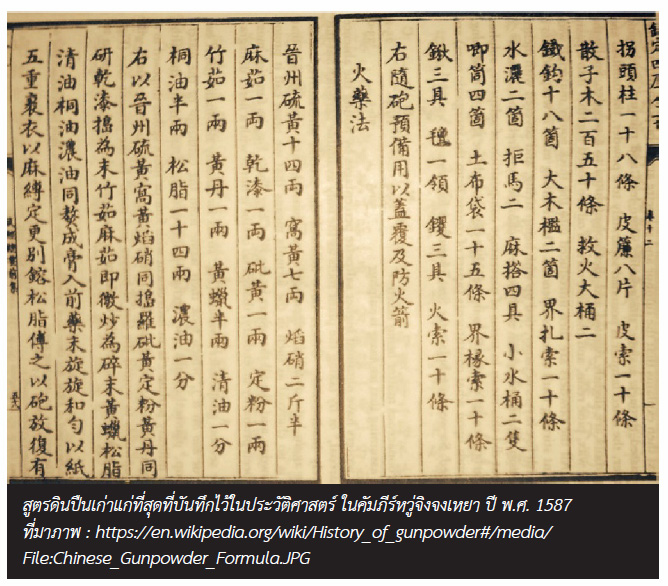 拐頭柱一十八條　皮簾八片　皮索一十條
散子木二百五十條　救火大桶二
鐵鈎十八箇　大木檻二箇　界扎索一十條
水濃二箇　拒馬二　麻搭四具　小水桶二隻
唧筒四箇　土布袋一十五條　界椽索一十條
鍬三具　氊一領　钁三具　火索一十條
右隨砲預備用以蓋覆及防火箭
火藥法
晉州硫黃十四兩　窩黃七兩　焰硝二斤半
麻茹一兩　乾漆一兩　砒黃一兩　定粉一兩
竹茹一兩　黃丹一兩　黃蠟半兩　清油一分
桐油半兩　松脂一十四兩　濃油一分
右以晉州硫黃窩黃焰硝同搗羅砒黃定粉黃丹同
研乾漆搗為末竹茹麻茹即微炒為碎末黃蠟松脂
清油桐油濃油同熬成膏入前藥末旋旋和勻以紙
五重裹衣以麻縛定更別鎔松脂傅之以砲放復有
สูตรดินปืนเก่าแก่ที่สุดที่บันทึกไว้ในประวัติศาสตร์ ในคัมภีร์หวู่จิงจงเหยา ปี พ.ศ. 1587
ที่มาภาพ : https://en.wikipedia.org/wiki/History_of_gunpowder#/media/
File:Chinese_Gunpowder_Formula.JPG